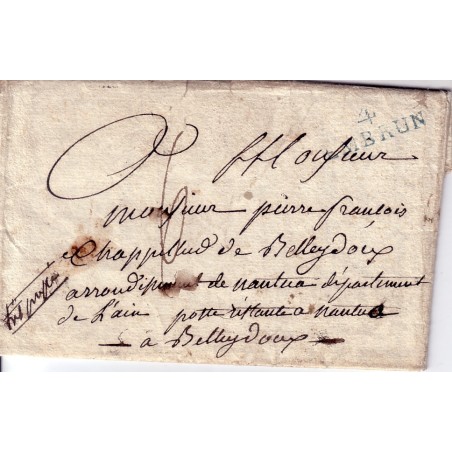 4
EMBRUN
A Monsieur
monsieur pierre francois
Chappellud de Belleydoux
arrondissement de nantua département
de l'ain poste restante a nantua
a Belleydoux